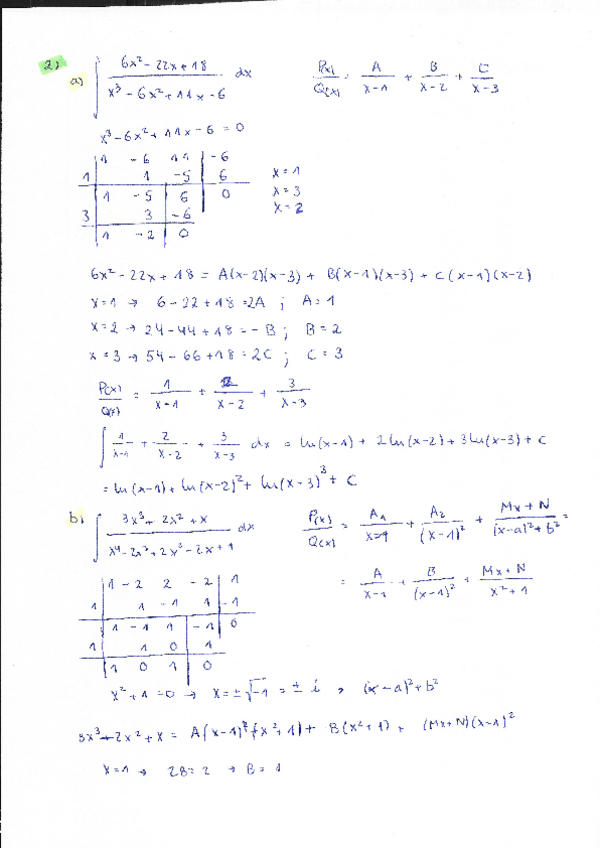 2)
a) ∫ (6x² - 22x + 18)/(x³ - 6x² + 11x - 6) dx    P(x)/Q(x) = A/(x-1) + B/(x-2) + C/(x-3)
x³ - 6x² + 11x - 6 = 0
1 -6 11 -6
1 | 1 -5 6    x = 1
1 -5 6 0    x = 3
3 | 3 -6    x = 2
1 -2 0
6x² - 22x + 18 = A(x-2)(x-3) + B(x-1)(x-3) + C(x-1)(x-2)
x = 1 → 6 - 22 + 18 = 2A ; A = 1
x = 2 → 24 - 44 + 18 = -B ; B = 2
x = 3 → 54 - 66 + 18 = 2C ; C = 3
P(x)/Q(x) = 1/(x-1) + 2/(x-2) + 3/(x-3)
∫ 1/(x-1) + 2/(x-2) + 3/(x-3) dx = ln(x-1) + 2ln(x-2) + 3ln(x-3) + C
= ln(x-1) + ln(x-2)² + ln(x-3)³ + C
b) ∫ (3x³ + 2x² + x)/(x⁴ - 2x³ + 2x² - 2x + 1) dx    P(x)/Q(x) = A₁/(x-1) + A₂/(x-1)² + (Mx + N)/((x-a)² + b²) =
= A/(x-1) + B/(x-1)² + (Mx + N)/(x² + 1)
1 -2 2 -2 1
1 | 1 -1 1 -1
1 -1 1 -1 0
1 | 1 0 1
1 0 1 0
x² + 1 = 0 → x = ±√-1 = ± i → (x - a)² + b²
3x³ - 2x² + x = A(x-1)(x² + 1) + B(x² + 1) + (Mx + N)(x-1)²
x = 1 → 2B = 2 → B = 1